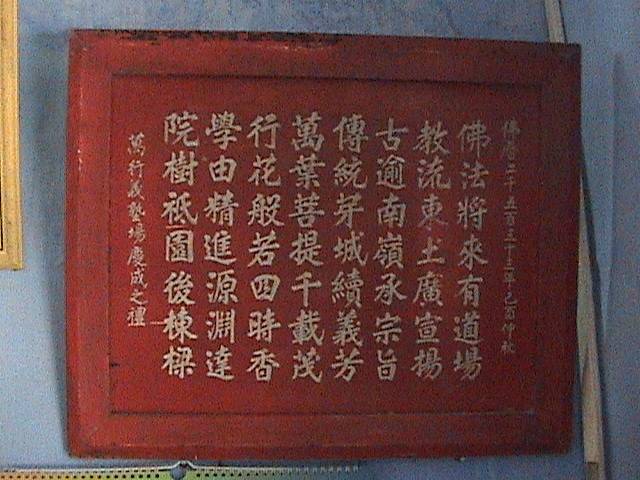 佛曆二千五百三十三年己酉仲秋
佛法將來有道場
教流東土廣宣揚
古逾南嶺承宗旨
傳統芽城續義芳
萬葉菩提千載茂
行花般若四時香
學由精進源淵達
院樹祇園後棟樑
萬行義塾場慶成之禮